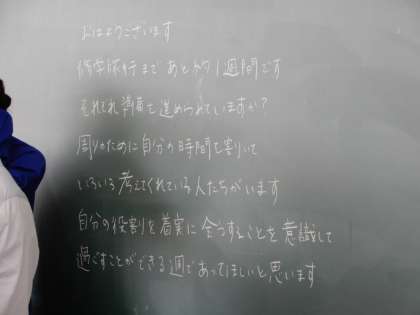 おはようございます
修学旅行まであと約1週間です
それぞれ準備を進められていますか？
周りのために自分の時間を割いて
いろいろ考えてくれている人たちがいます
自分の役割を着実に全うすることを意識して
過ごすことができる週であってほしいと思います